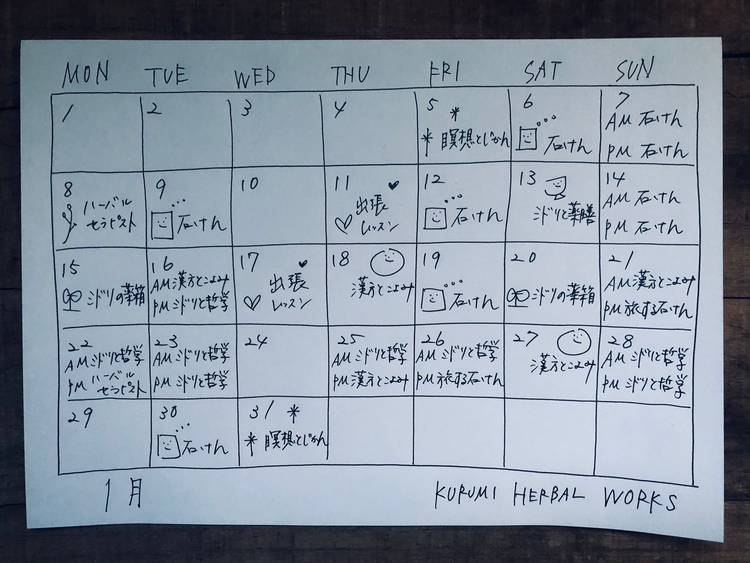 MON TUE WED THU FRI SAT SUN
1
2
3
4
5 *
* 瞑想とじかん
6
石けん
7
AM 石けん
PM 石けん
8
ハーバル
セラピスト
9
石けん
10
11
出張
レッスン
12
石けん
13
ミドリと薬膳
14
AM 石けん
PM 石けん
15
ミドリの薬箱
16
AM 漢方とこよみ
PM ミドリと哲学
17
出張
レッスン
18
漢方とこよみ
19
石けん
20
ミドリの薬箱
21
AM 漢方とこよみ
PM 旅する石けん
22
AM ミドリと哲学
PM ハーバル
セラピスト
23
AM ミドリと哲学
PM ミドリと哲学
24
25
AM ミドリと哲学
PM 漢方とこよみ
26
AM ミドリと哲学
PM 旅する石けん
27
漢方とこよみ
28
AM ミドリと哲学
PM ミドリと哲学
29
30
石けん
31 *
* 瞑想とじかん
1月
KURUMI HERBAL WORKS